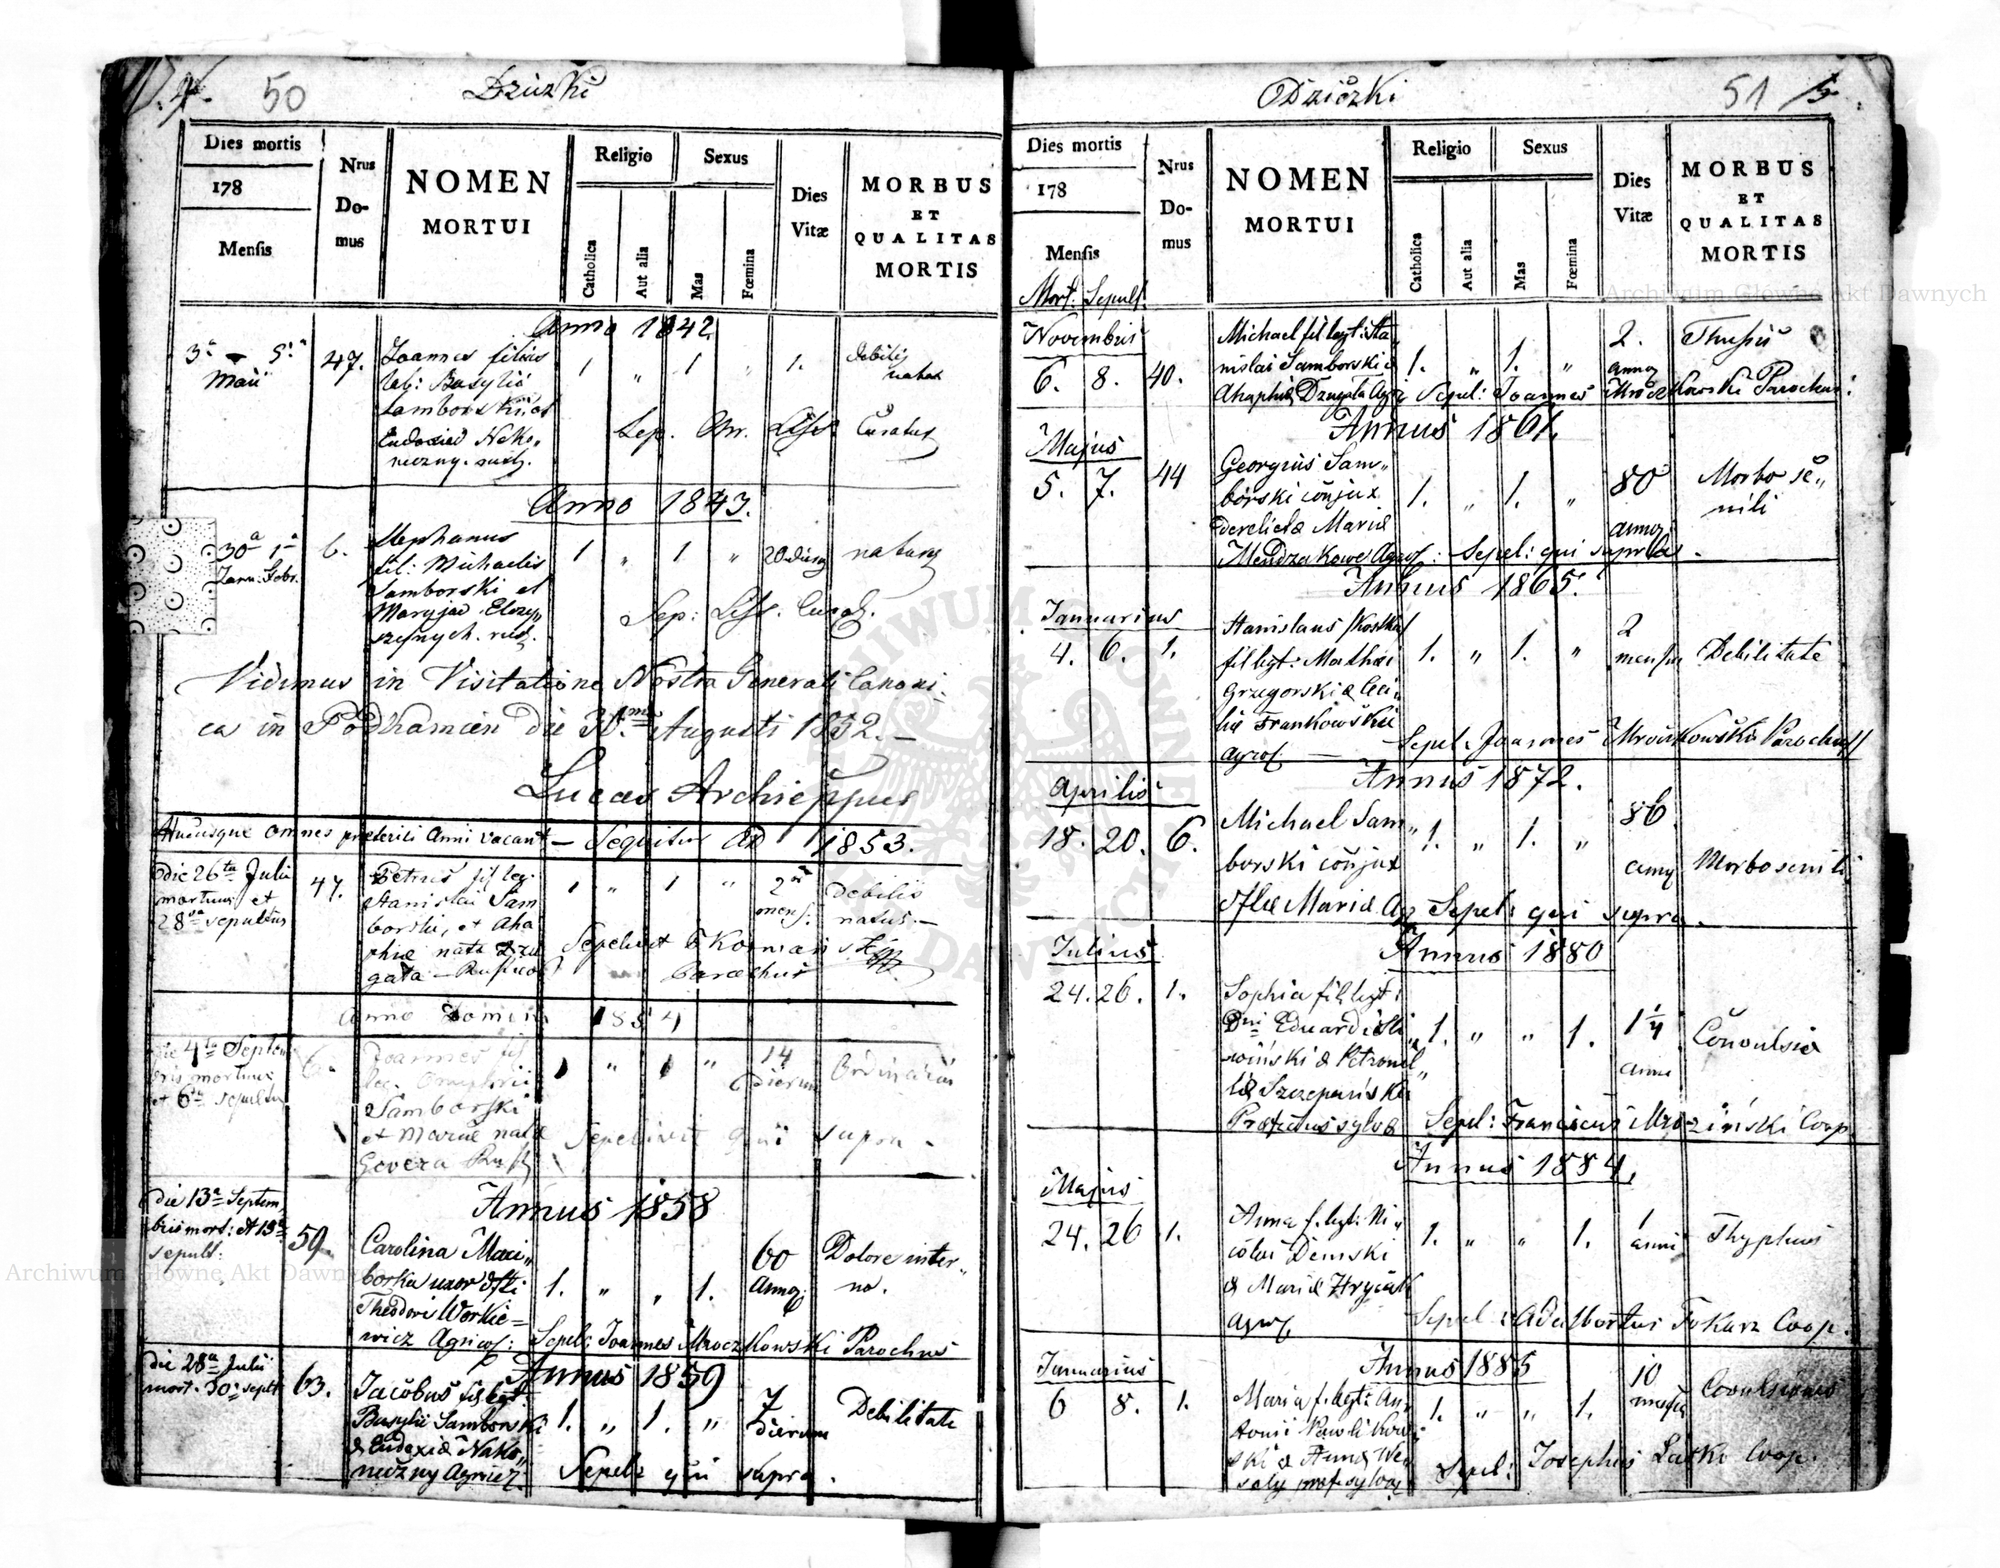 4. 50 Dziuzki
Dies mortis
178
Mensis
Nrus Do- mus
NOMEN
MORTUI
Religio
Catholica
Aut alia
Sexus
Mas
Fœmina
Dies
Vitæ
MORBUS
ET
QUALITAS
MORTIS
Anno 1842.
3a 5a
Maii
47.
Joannes filius
leg: Basylii
Samborskii et
Eudoxiae Nako,
nieczny. rustq.
1 „ 1 „ 1.
debilis
natus
Sep. Curatus
Anno 1843.
30a 1a
Janu. Febr.
6.
Stephanus
fil: Michaelis
Samborski et
Maryjae
szejnych. rust.
1 „ 1 „ 20 dierum
natus
Sep: Curat.
Vidimus in Visitatione Nostra Generali Canoni-
ca in Podkamien die 30ma Augusti 1852. —
Lucas Archieppus
Hucusque omnes preteriti Anni vacant — Sequitur AD 1853.
die 26ta Julii
mortuus et
28va sepultus
47.
Petrus fil leg.
Stanislai Sam
borski, et Aha
phiae nata Dzu
gata — Rustico
1 „ 1 „ 2
mens:
debilis
natus. —
Sepelivit Kosman
Parochus
Anno Domini 1854
die 4ta Septem
bris mortuus
et 6ta sepultus
6.
Joannes fil
leg. Onuphrii
Samborski
et Mariae natae
Gevera Rust
1 „ 1 „ 14
dierum
Ordinarius
Sepelivit qui supra -
Annus 1858
die 13a Septem
bris mort: et 15a
sepult.
59.
Carolina Maci„
borska uxor dfti
Theodori Workie=
wicz Agricol:
1. „ „ 1.
60
Annor.
Dolore inter„
no.
Sepel: Joannes Mroczkowski Parochus
Annus 1859
die 28a Julii
mort. 30a sepult
63.
Jacobus fil legt.
Basylii Samborski
& Eudoxiae Nako„
nieczny Agricol.
1. „ 1. „ 7
dierum
Debilitate
Sepel: qui supra.
Dziczki 51 5
Dies mortis
178
Mensis
Mort. Sepult.
Nrus Do- mus
NOMEN
MORTUI
Religio
Catholica
Aut alia
Sexus
Mas
Fœmina
Dies
Vitæ
MORBUS
ET
QUALITAS
MORTIS
Novembris
6. 8. 40.
Michael fil legt: Sta„
nislai Samborski &
Ahaphiae Dzugała Agr
1. „ 1. „ 2.
annor
Thusis
Sepel: Joannes Mroczkowski Parochus:
Annus 1861.
Majus
5. 7. 44
Georgius Sam„
borski conjux
derelictae Mariae
Mendzakowe Agrof:
1. „ 1. „ 80
annor
Morbo se„
nili
Sepel: qui supra.
Annus 1865.
Januarius
4. 6. 1.
Stanislaus /Kostka/
fil legt: Mathaei
Grzegorski & Ceci„
liae Frankowskie
agrof.
1. „ 1. „ 2
mensium
Debilitate
Sepel: Joannes Mroczkowski Parochus
Annus 1872.
Aprilis
18. 20. 6.
Michael Sam„
borski conjux
dftae Mariae Agr
1. „ 1. „ 86
annor
Morbo senili
Sepel: qui supra.
Annus 1880
Julius
24. 26. 1.
Sophia fil. legt:
Dni Eduardi Sli
wiński & Petronel„
lae Szczepańska
Praefectus sylvae
1. „ „ 1. 1 1/4
anni
Convulsio
Sepel: Franciscus Mroziński Coop.
Annus 1884.
Majus
24. 26 1.
Anna f. legt: Ni„
colai Demski
& Mariae Hryciuk
agrof
1. „ „ 1. 1
anni
Thyphus
Sepel: Adalbertus Tokarz Coop.
Annus 1885
Januarius
6 8. 1.
Maria f. legt: An„
tonii Pawlikow
ski & Annae We
soły prof. sylvae
1. „ „ 1. 10
mensium
Convulsionis
Sepel: Josephus Latki Coop.
Archiwum Główne Akt Dawnych
Archiwum Główne Akt Dawnych
ARCHIWUM GŁÓWNE AKT DAWNYCH